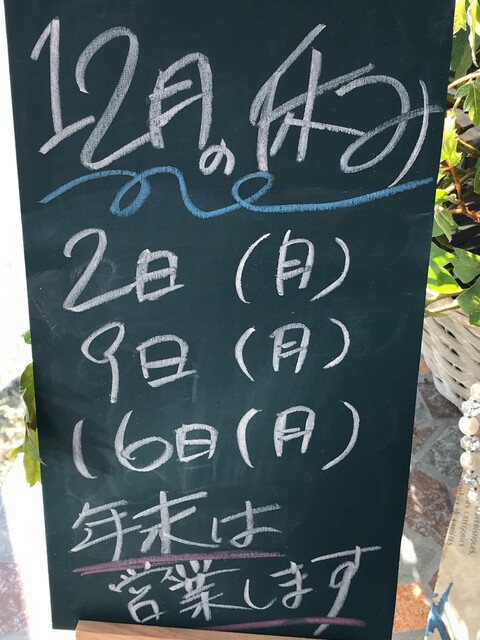 12月の休み
2日(月)
9日(月)
16日(月)
年末は
営業します